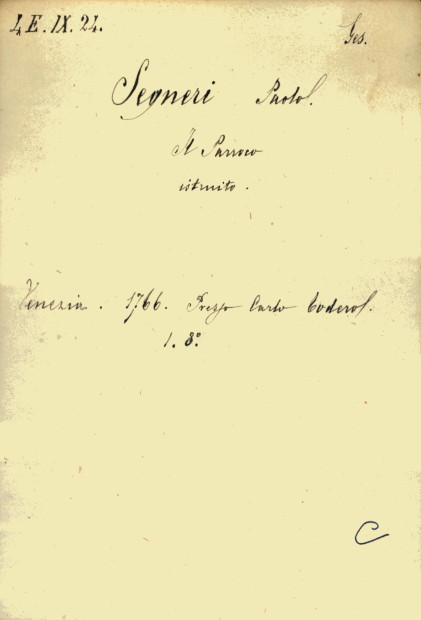 4 E. IX. 24.
Ges.
Segneri Paolo.
Il Parroco
istruito.
Venezia. 1766. Presso Carlo Todero.
1. 8º
C